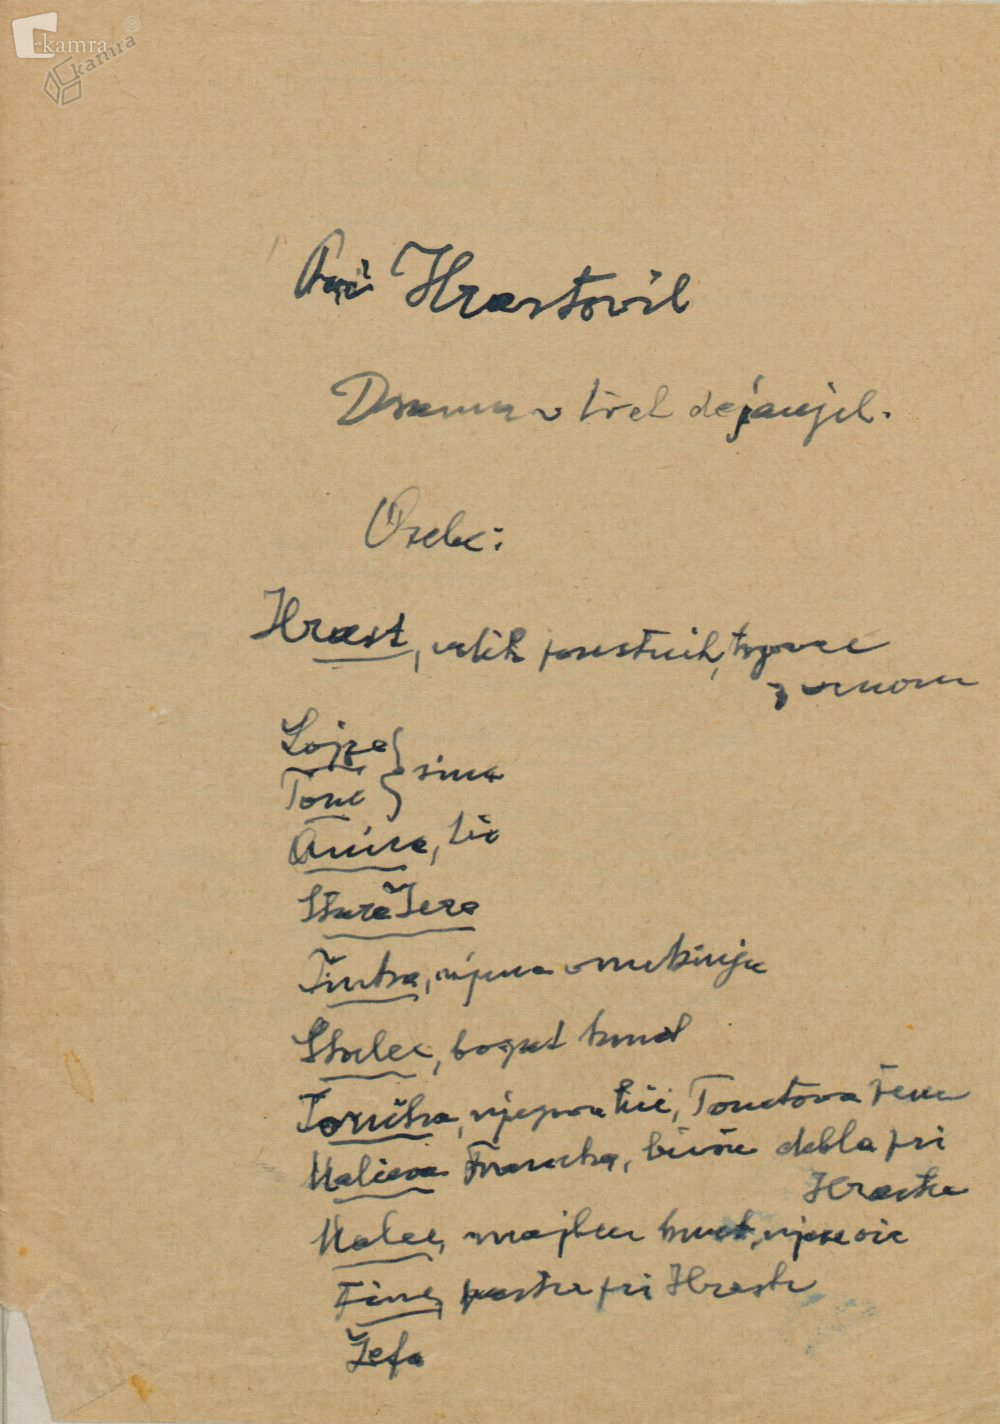 kamra
kamra
Pri Hrastovih
Drama v treh dejanjih.
Osebe:
Hrast, velik posestnik, trgovec
z vinom
Lojze
Tone } sina
Ančka, hči
Stara Jera
Tinka, njena vnukinja
Skalec, bogat kmet
Tončka, njegova hči, Tonetova žena
Malieva Francka, bivša dekla pri
Hrastu
Malec, majhen kmet, njen oče
Fine, pastir pri Hrastu
Žefa